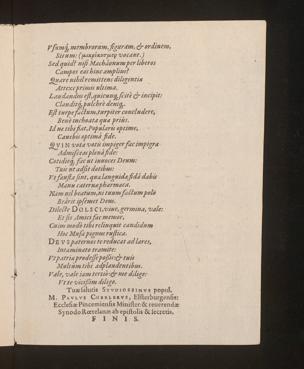 Vsumq́, membrorum, figuram, & ordinem,
Situm: (μακρόκοσμον vocant.)
Sed quid? nisi Machâonum per liberos
Campos eas hinc amplius?
Quare nihil remittens diligentia
Attexe primis ultima.
Laudandus est, quicunq́, scitè & incipit:
Clauditq́, pulchrè deniq́.
Est turpe factum, turpiter concludere,
Benè inchoata qua prius.
Id ne tibi fiat, Popularis optime,
Cautus optimâ fide.
QVIN vota votis impiger fac impigra
Admisceas plenâ fide:
Cotidieq́, fac ut invoces Deum:
Tuis ut adsit dotibus:
Ut fausta sint, qua languida fidâ dabis
Manu caterva pharmaca.
Nam nil beatum, ni tuum factum polo
Beârit ipsemet Deus.
Dilecte DOLSCI, vive, germina, vale:
Et sis Amici fac memor,
Cuius modò tibi relinquit candidum
Hoc Musa pignus rustica.
DEVS paternos te reducat ad lares,
Intaminato tramite:
Ut patriæ prodesse possis & tuis
Multùm tibi adplaudentibus.
Vale, vale iam tertiò & me dilige:
Ut te vicissim diligo.
Tuæ salutis STVDIOSISSIMVS poposc.
M. PAVLVS CHERLERVS, Elsterburgensis:
Ecclesiæ Pincensensis Minister & reverendæ
Synodo Rœtelanæ ab epistolis & secretis.
FINIS.